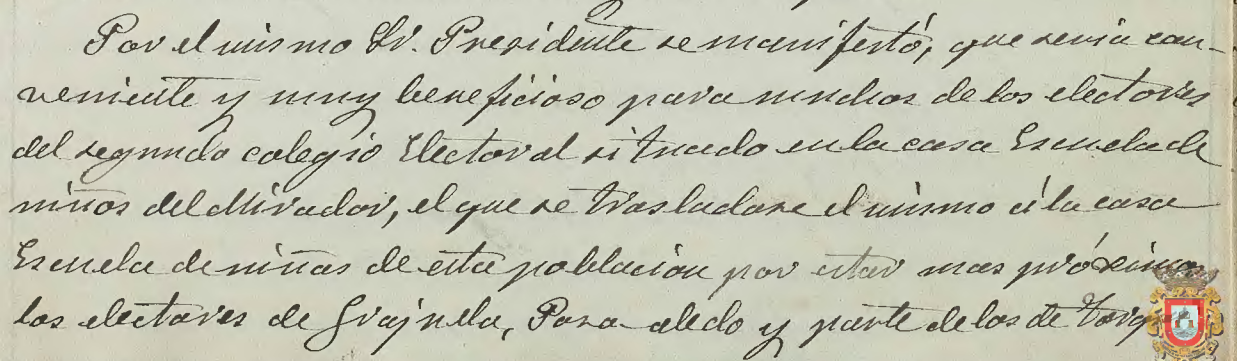 Por el mismo Sr. Presidente se manifestó, que seria con-
veniente y muy beneficioso para muchos de los electores
del segundo colegio Electoral situado en la casa Escuela de
niños del Mirador, el que se trasladase el mismo á la casa
Escuela de niñas de esta poblacion por estar mas próximo
los electores de Grajuela, Pozo-aledo y parte de los de